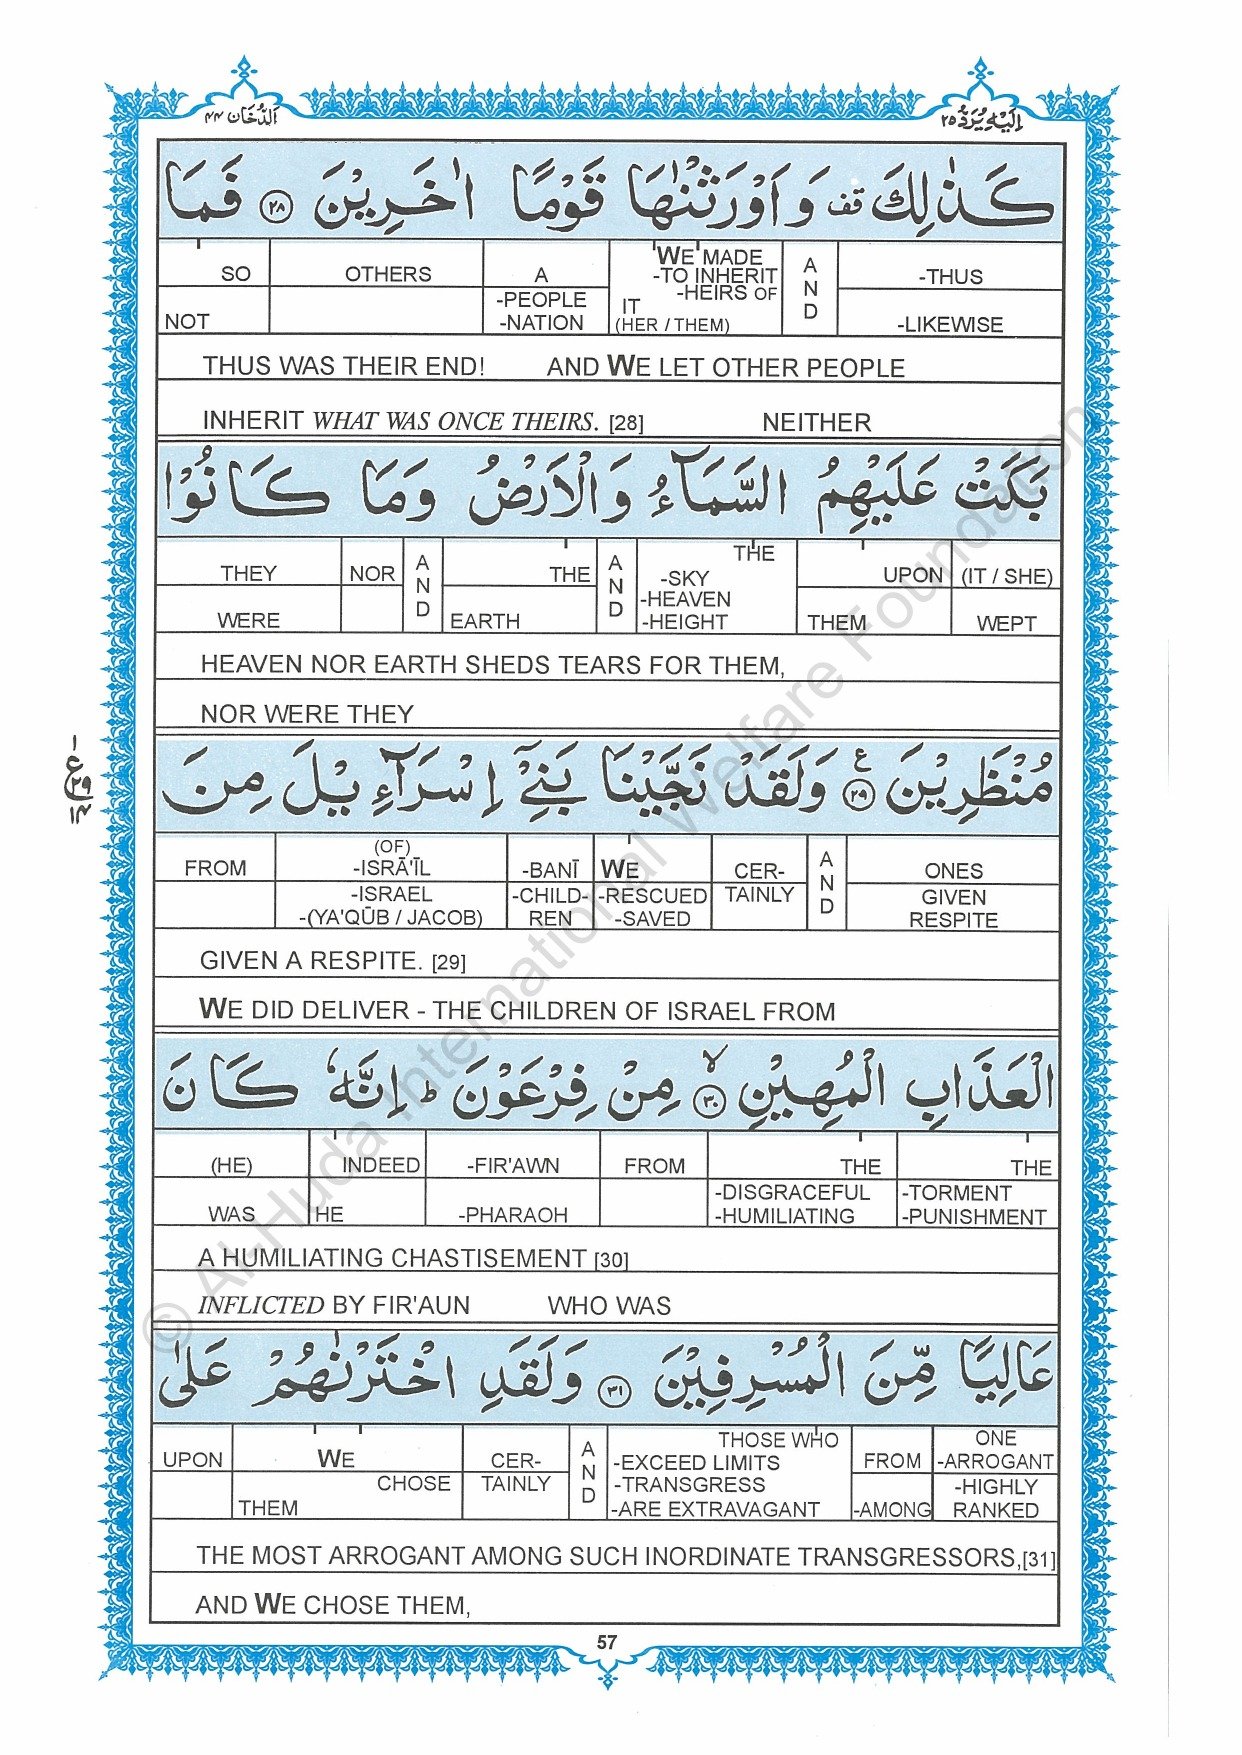 اِلَيْهِ يُرَدُّ ٢٥ اَلدُّخَان ٤٤
كَذٰلِكَ قف وَ اَوْرَثْنٰهَا قَوْمًا اٰخَرِيْنَ ٢٨ فَمَا
SO OTHERS A WE MADE A -THUS
-TO INHERIT N
NOT -PEOPLE IT -HEIRS OF D -LIKEWISE
-NATION (HER / THEM)
THUS WAS THEIR END! AND WE LET OTHER PEOPLE
INHERIT WHAT WAS ONCE THEIRS. [28] NEITHER
بَكَتْ عَلَيْهِمُ السَّمَآءُ وَ الْاَرْضُ وَمَا كَانُوْا
THEY NOR A THE A THE UPON (IT / SHE)
N N -SKY
WERE D EARTH D -HEAVEN THEM WEPT
-HEIGHT
HEAVEN NOR EARTH SHEDS TEARS FOR THEM,
NOR WERE THEY
مُنْظَرِيْنَ ٢٩ ع وَ لَقَدْ نَجَّيْنَا بَنِيْٓ اِسْرَآءِيْلَ مِنَ
١
ع
٢٩
١٤
FROM (OF) -BANĪ WE CER- A ONES
-ISRĀ'ĪL
-ISRAEL -CHILD- -RESCUED TAINLY N GIVEN
-(YA'QŪB / JACOB) REN -SAVED D RESPITE
GIVEN A RESPITE. [29]
WE DID DELIVER - THE CHILDREN OF ISRAEL FROM
الْعَذَابِ الْمُهِيْنِ ٣٠ لا مِنْ فِرْعَوْنَ ط اِنَّهٗ كَانَ
(HE) INDEED -FIR'AWN FROM THE THE
-DISGRACEFUL -TORMENT
WAS HE -PHARAOH -HUMILIATING -PUNISHMENT
A HUMILIATING CHASTISEMENT [30]
INFLICTED BY FIR'AUN WHO WAS
عَالِيًا مِّنَ الْمُسْرِفِيْنَ ٣١ وَ لَقَدِ اخْتَرْنٰهُمْ عَلٰى
UPON WE CER- A THOSE WHO FROM ONE
-EXCEED LIMITS -ARROGANT
CHOSE TAINLY N -TRANSGRESS -HIGHLY
THEM D -ARE EXTRAVAGANT -AMONG RANKED
THE MOST ARROGANT AMONG SUCH INORDINATE TRANSGRESSORS,[31]
AND WE CHOSE THEM,
57
© Al-Huda International Welfare Foundation